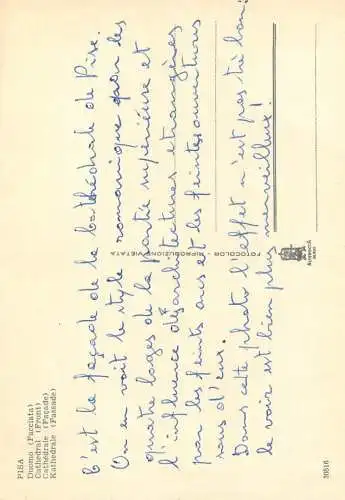 PISA
Duomo (Facciata)
Cathedral (Front)
Cathédrale (Façade)
Kathedrale (Fassade)
C'est la façade de la cathédrale de Pise.
On en voit le style romanique pour les
quatre loges de la partie supérieure et
l'influence des architectures étrangères
par les feints arcs et les feintes ouvertures
sous d'eux.
Dans cette photo l'effet n'est pas trè bon:
le voir est bien plus merveilleux!
FOTOCOLOR - RIPRODUZIONE VIETATA
30516